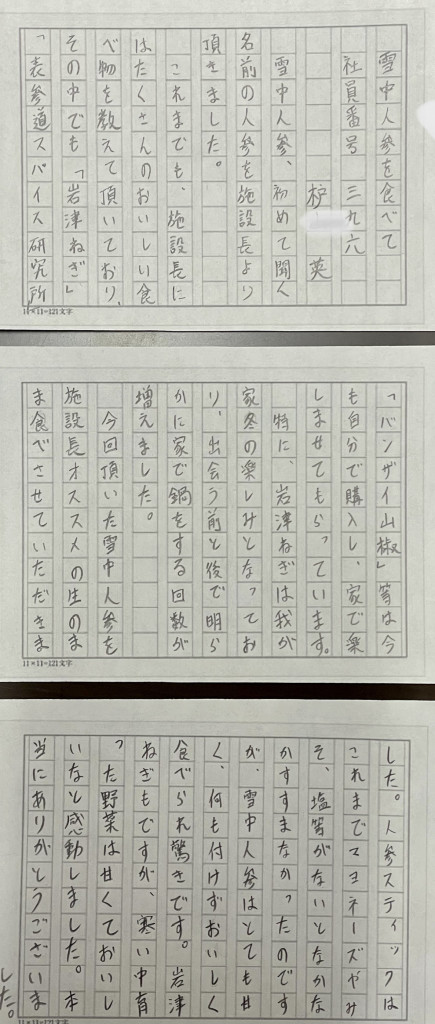 雪中人参を食べて
社員番号 三九六
枦 英
雪中人参、初めて聞く
名前の人参を施設長より
頂きました。
これまでも、施設長に
はたくさんのおいしい食
べ物を教えて頂いており、
その中でも「岩津ねぎ」
「表参道スパイス研究所
11×11=121文字
「バンザイ山椒」等は今
も自分で購入し、家で楽
しませてもらっています。
特に、岩津ねぎは我が
家冬の楽しみとなってお
り、出会う前と後で明ら
かに家で鍋をする回数が
増えました。
今回頂いた雪中人参を
施設長オススメの生のま
ま食べさせていただきま
11×11=121文字
した。人参スティックは
これまでマヨネーズやみ
そ、塩等がないとなかな
かすすまなかったのです
が、雪中人参はとても甘
く、何も付けずおいしく
食べられ驚きです。岩津
ねぎもですが、寒い中育
った野菜は甘くておいし
いなと感動しました。本
当にありがとうございま
した。
11×11=121文字